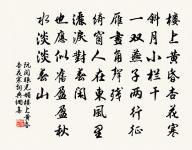 樓上黃昏杏花寒
斜月小欄干
一雙燕子兩行征
雁畫角聲殘
綺窗人在東風里
灑淚對春閑
也應似舊盈盈秋
水淡淡春山
阮閱眼兒媚樓上黃昏
杏花寒